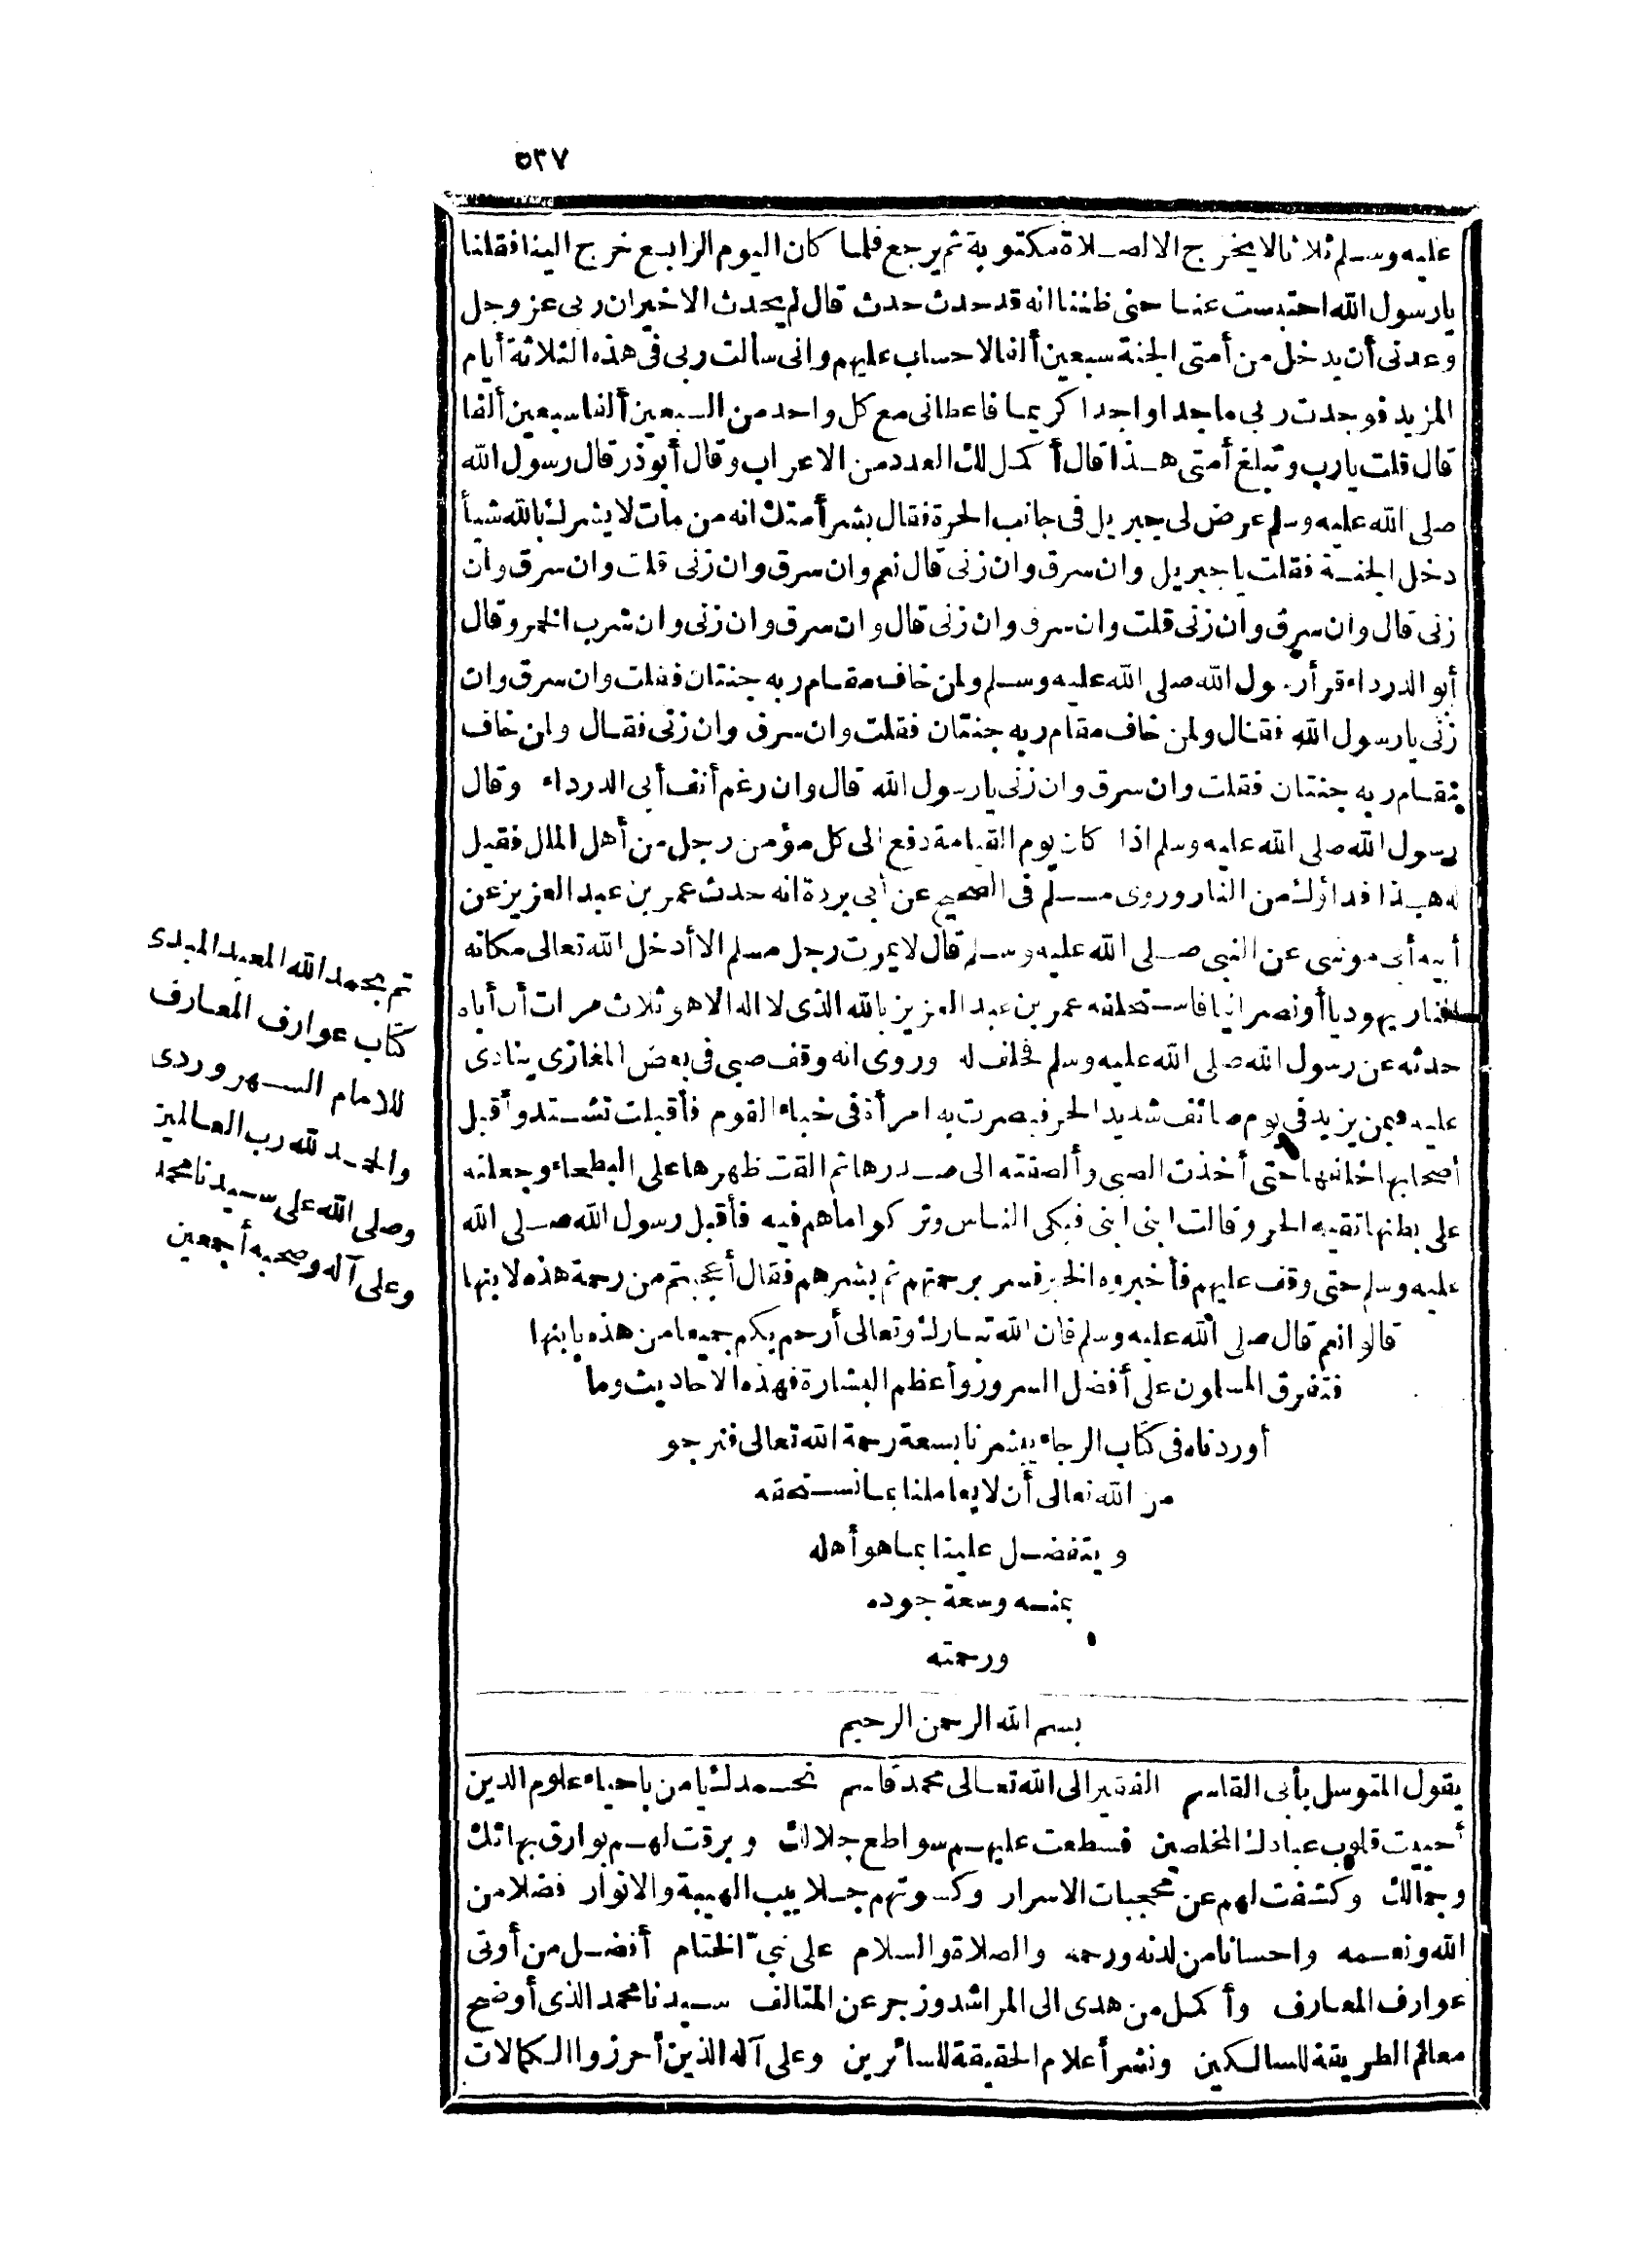 ٥٣٧
عليه وسلم ثلاثا لا يخرج الا لصلاة مكتوبة ثم يرجع فلما كان اليوم الرابع خرج الينا فقلنا
يارسول الله احتبست عنا حتى ظننا انه قد حدث حدث قال لم يحدث الا خير ان ربى عز وجل
وعدنى أن يدخل من أمتى الجنة سبعين ألفا لا حساب عليهم وانى سألت ربى فى هذه الثلاثة أيام
المزيد فوجدت ربى ماجدا واجدا كريما فاعطانى مع كل واحد من السبعين ألفا سبعين ألفا
قال قلت يارب وتبلغ أمتى هذا قال أكمل لك العدد من الاعراب وقال أبو ذر قال رسول الله
صلى الله عليه وسلم عرض لى جبريل فى جانب الحرة فقال بشر أمتك انه من مات لا يشرك بالله شيأ
دخل الجنة فقلت يا جبريل وان سرق وان زنى قال نعم وان سرق وان زنى قلت وان سرق وان
زنى قال وان سرق وان زنى قلت وان سرق وان زنى قال وان سرق وان زنى وان شرب الخمر وقال
أبو الدرداء قرأ رسول الله صلى الله عليه وسلم ولمن خاف مقام ربه جنتان فقلت وان سرق وان
زنى يارسول الله فقال ولمن خاف مقام ربه جنتان فقلت وان سرق وان زنى فقال ولمن خاف
مقام ربه جنتان فقلت وان سرق وان زنى يارسول الله قال وان رغم أنف أبى الدرداء وقال
رسول الله صلى الله عليه وسلم اذا كان يوم القيامة دفع الى كل مؤمن رجل من أهل الملل فقيل
له هذا فداؤك من النار وروى مسلم فى الصحيح عن أبى بردة انه حدث عمر بن عبد العزيز عن
أبيه أبى موسى عن النبى صلى الله عليه وسلم قال لا يموت رجل مسلم الا أدخل الله تعالى مكانه
النار يهوديا أو نصرانيا فاستحلفه عمر بن عبد العزيز بالله الذى لا اله الا هو ثلاث مرات أن أباه
حدثه عن رسول الله صلى الله عليه وسلم فحلف له وروى انه وقف صبى فى بعض المغازى ينادى
عليه فيمن يزيد فى يوم صائف شديد الحر فبصرت به امرأة فى خباء القوم فأقبلت تشتد وأقبل
أصحابها خلفها حتى أخذت الصبى وألصقته الى صدرها ثم القت ظهرها على البطحاء وجعلته
على بطنها تقيه الحر وقالت ابنى ابنى فبكى الناس وتركوا ما هم فيه فأقبل رسول الله صلى الله
عليه وسلم حتى وقف عليهم فأخبروه الخبر فسر برحمتهم ثم بشرهم فقال أعجبتم من رحمة هذه لابنها
قالوا نعم قال صلى الله عليه وسلم فان الله تبارك وتعالى أرحم بكم جميعا من هذه بابنها
فتفرق المسلمون على أفضل السرور وأعظم البشارة فهذه الاحاديث وما
أوردناه فى كتاب الرجاء يبشرنا بسعة رحمة الله تعالى فنرجو
من الله تعالى أن لا يعاملنا بما نستحقه
ويتفضل علينا بما هو أهله
بمنه وسعة جوده
ورحمته
تم بحمد الله المعيد المبدى
كتاب عوارف المعارف
للامام السهروردى
والحمد لله رب العالمين
وصلى الله على سيدنا محمد
وعلى آله وصحبه أجمعين
بسم الله الرحمن الرحيم
يقول المتوسل بأبى القاسم الفقير الى الله تعالى محمد قاسم نحمدك يامن باحياء علوم الدين
أحييت قلوب عبادك المخلصين فسطعت عليهم سواطع جلالك وبرقت لهم بوارق بهائك
وجمالك وكشفت لهم عن محجبات الاسرار وكسوتهم جلابيب الهيبة والانوار فضلا من
الله ونعمه واحسانا من لدنه ورحمه والصلاة والسلام على نبىّ الختام أفضل من أوتى
عوارف المعارف وأكمل من هدى الى المراشد وزجر عن المتالف سيدنا محمد الذى أوضح
معالم الطريقة للسالكين ونشر أعلام الحقيقة للسائرين وعلى آله الذين أحرزوا الكمالات